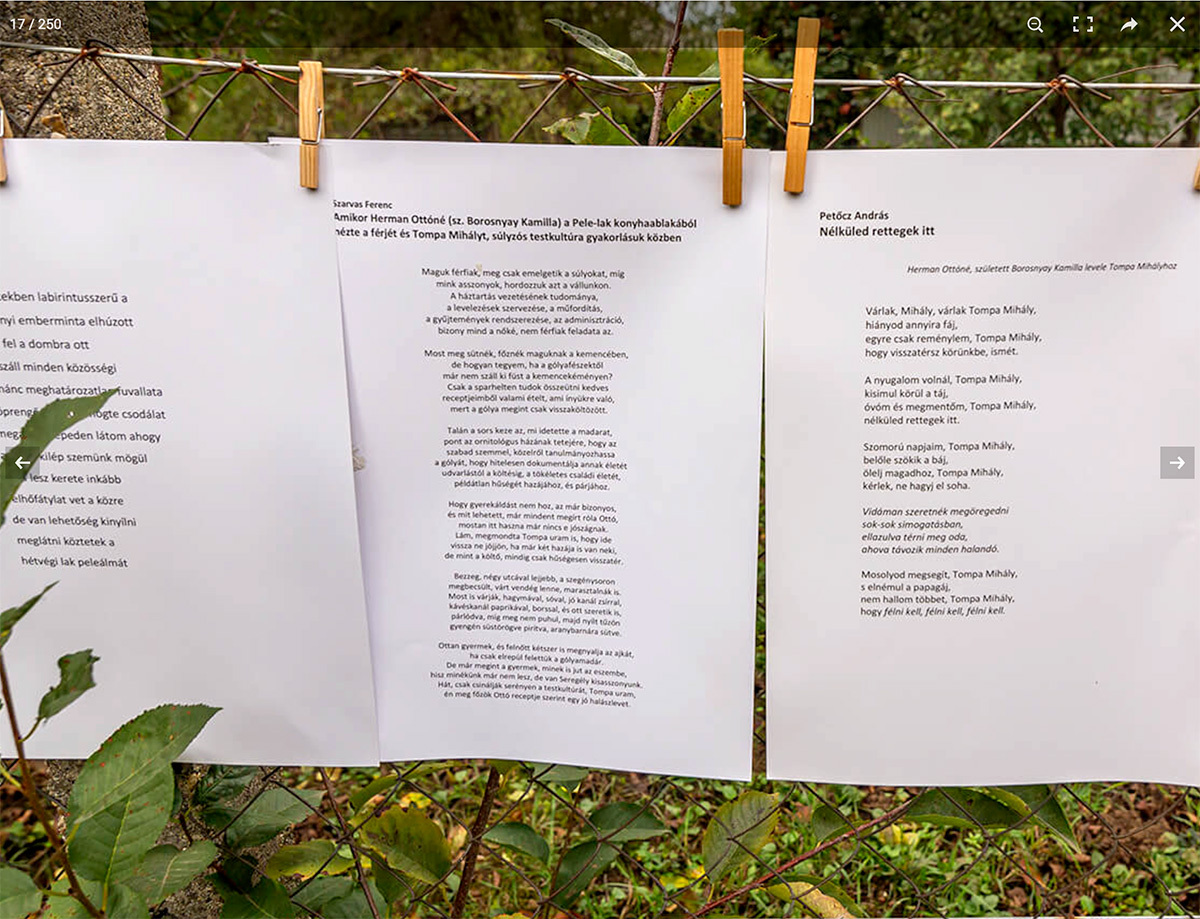 17 / 250
ekben labirintusszerű a
nyi emberminta elhúzott
fel a dombra ott
száll minden közösségi
meghatározatlan fuvallata
csodálat
látom ahogy
kilép szemünk mögül
lesz kerete inkább
felhőfátylat vet a közre
de van lehetőség kinyílni
meglátni köztetek a
hétvégi lak peleálmát
Szarvas Ferenc
Amikor Herman Ottóné (sz. Borosnyay Kamilla) a Pele-lak konyhaablakából
nézte a férjét és Tompa Mihályt, súlyzós testkultúra gyakorlásuk közben
Maguk férfiak, meg csak emelgetik a súlyokat, míg
mink asszonyok, hordozzuk azt a vállunkon.
A háztartás vezetésének tudománya,
a levelezések szervezése, a műfordítás,
a gyűjtemények rendszerezése, az adminisztráció,
bizony mind a nőké, nem férfiak feladata az.
Most meg sütnék, főznék maguknak a kemencében,
de hogyan tegyem, ha a gólyafészektől
már nem száll ki füst a kemencekéményen?
Csak a sparhelten tudok összeütni kedves
receptjeimből valami ételt, ami ínyükre való,
mert a gólya megint csak visszaköltözött.
Talán a sors keze az, mi idetette a madarat,
pont az ornitológus házának tetejére, hogy az
szabad szemmel, közelről tanulmányozhassa
a gólyát, hogy hitelesen dokumentálja annak életét
udvarlástól a költésig, a tökéletes családi életét,
példátlan hűségét hazájához, és párjához.
Hogy gyerekáldást nem hoz, az már bizonyos,
és mit lehetett, már mindent megírt róla Ottó,
mostan itt haszna már nincs e jószágnak.
Lám, megmondta Tompa uram is, hogy ide
vissza ne jöjjön, ha már két hazája is van neki,
de mint a költő, mindig csak hűségesen visszatér.
Bezzeg, négy utcával lejjebb, a szegénysoron
megbecsült, várt vendég lenne, marasztalnák is.
Most is várják, hagymával, sóval, jó kanál zsírral,
kávéskanál paprikával, borssal, és ott szeretik is,
párlódva, míg meg nem puhul, majd nyílt tűzön
gyengén süstörögve pirítva, aranybarnára sütve.
Ottan gyermek, és felnőtt kétszer is megnyalja az ajkát,
ha csak elrepül felettük a gólyamadár.
De már megint a gyermek, minek is jut az eszembe,
hisz minékünk már nem lesz, de van Seregély kisasszonyunk.
Hát, csak csinálják serényen a testkultúrát, Tompa uram,
én meg főzök Ottó receptje szerint egy jó halászlevet.
Petőcz András
Nélküled rettegek itt
Herman Ottóné, született Borosnyay Kamilla levele Tompa Mihályhoz
Várlak, Mihály, várlak Tompa Mihály,
hiányod annyira fáj,
egyre csak reménylem, Tompa Mihály,
hogy visszatérsz körünkbe, ismét.
A nyugalom volnál, Tompa Mihály,
kisimul körül a táj,
óvóm és megmentőm, Tompa Mihály,
nélküled rettegek itt.
Szomorú napjaim, Tompa Mihály,
belőle szökik a báj,
ölelj magadhoz, Tompa Mihály,
kérlek, ne hagyj el soha.
Vidáman szeretnék megöregedni
sok-sok simogatásban,
ellazulva térni meg oda,
ahova távozik minden halandó.
Mosolyod megsegít, Tompa Mihály,
s elnémul a papagáj,
nem hallom többet, Tompa Mihály,
hogy félni kell, félni kell, félni kell.